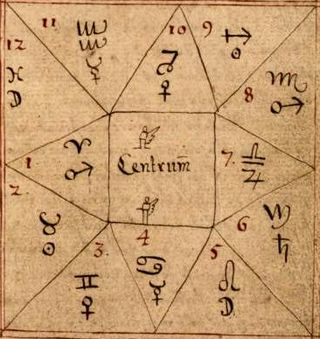 11 ♒ 10 9 ♐
12 ☿ ♑ ☉
♓ ♀ ♏
☽ 8 ♂
1 ♈ Centrum̄ 7. ♎
2. ♂ ♃
♉ 6
☉ 3. 4 5 ♄
♊ ♋ ♌
♀ ☿ ☽